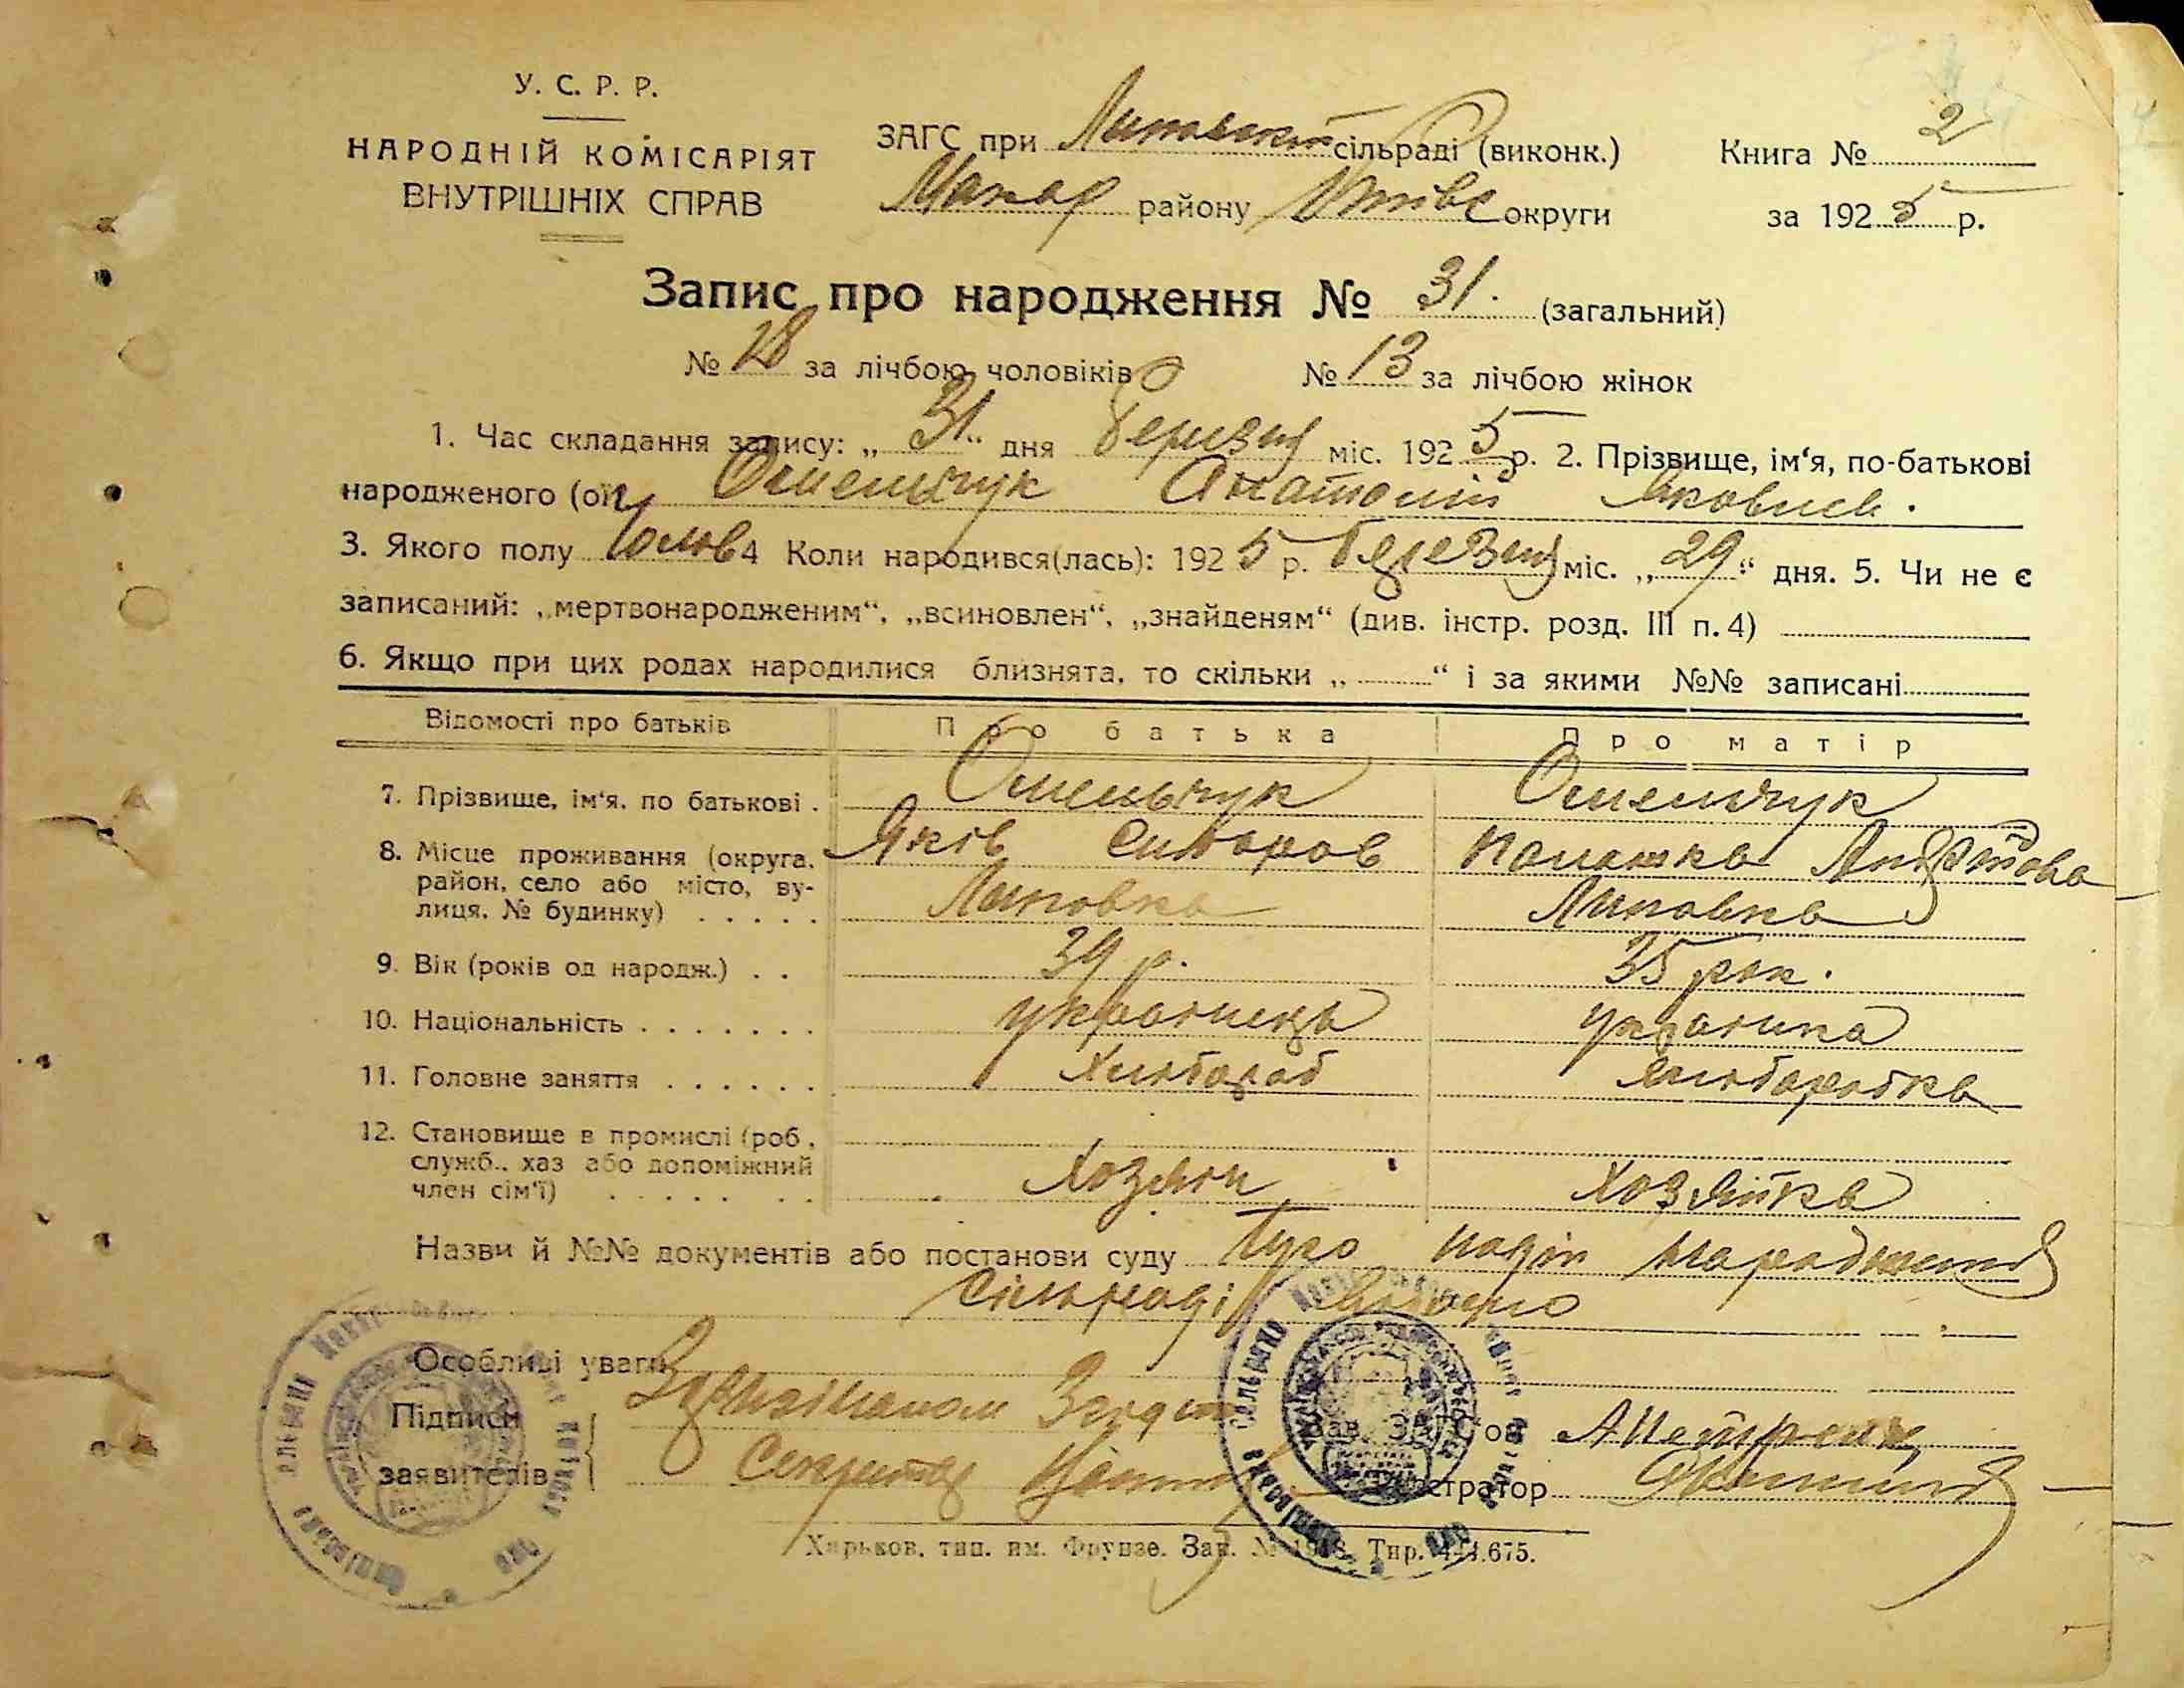 У. С. Р. Р.
НАРОДНІЙ КОМІСАРІЯТ
ВНУТРІШНІХ СПРАВ
ЗАГС при сільраді (виконк.)
Макар району округи
Книга № 2
за 1925 р.
Запис про народження № 31. (загальний)
№ 18 за лічбою чоловіків № 13 за лічбою жінок
1. Час складання запису: „ 31 " дня березня міс. 1925 р. 2. Прізвище, ім'я, по-батькові
народженого (ої) Омельчук Анатолій Яковлев.
3. Якого полу Чолов 4 Коли народився(лась): 1925 р. березня міс. „ 29 " дня. 5. Чи не є
записаний: „мертвонародженим", „всиновлен", „знайденям" (див. інстр. розд. III п. 4)
6. Якщо при цих родах народилися близнята, то скільки „ " і за якими №№ записані
Відомості про батьків Про батька Про матір
7. Прізвище, ім'я, по батькові . Омельчук Омельчук
Яків Сидоров Палажка
8. Місце проживання (округа, район, село або місто, вулиця, № будинку) . . . . . Липовка Липовка
9. Вік (років од народж.) . . 39 р. 35 рок.
10. Національність . . . . . . . українець українка
11. Головне заняття . . . . . . Хлібороб хліборобка
12. Становище в промислі (роб., служб., хаз або допоміжний член сім'ї) . . . . . . . Хозяін Хозяйка
Назви й №№ документів або постанови суду
сільраді
Особливі уваги
Підписи
заявителів
Секретар
Зав. ЗАГС'ом
Реєстратор
Харьков, тип. им. Фрунзе. Зак. № Тир.